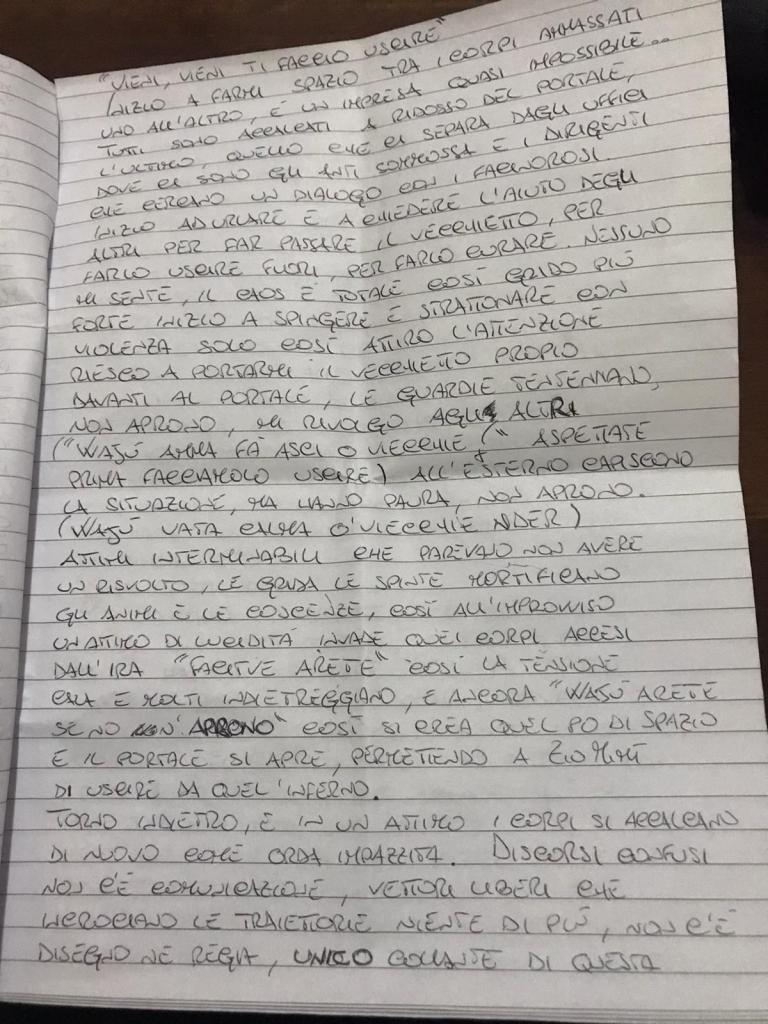 "VIENI, VIENI TI FACCIO USCIRE"
INIZIO A FARMI SPAZIO TRA I CORPI AMMASSATI
UNO ALL'ALTRO, E UN IMPRESA QUASI IMPOSSIBILE...
TUTTI SONO ACCALCATI A RIDOSSO DEL PORTALE,
L'ULTIMO, QUELLO CHE CI SEPARA DAGLI UFFICI
DOVE CI SONO GLI ANTI SOMMOSSA E I DIRIGENTI
CHE CERCANO UN DIALOGO CON I FACINOROSI.
INIZIO AD URLARE E A CHIEDERE L'AIUTO DEGLI
ALTRI PER FAR PASSARE IL VECCHIETTO, PER
FARLO USCIRE FUORI, PER FARLO CURARE. NESSUNO
MI SENTE, IL CAOS È TOTALE COSÌ GRIDO PIÙ
FORTE INIZIO A SPINGERE E STRATTONARE CON
VIOLENZA SOLO COSÌ ATTIRO L'ATTENZIONE
RIESCO A PORTARMI IL VECCHIETTO PROPIO
DAVANTI AL PORTALE, LE GUARDIE TENTENNANO,
NON APRONO, MI RIVOLGO AGLI ALTRI
("WAJÙ AMMA FÀ ASCI O VIECCHIE (" ASPETTATE
PRIMA FACCIAMOLO USCIRE) ALL'ESTERNO CAPISCONO
LA SITUAZIONE, MA HANNO PAURA, NON APRONO.
(WAJÙ VATA CALMA O'VIECCHIE NDER)
ATTIMI INTERMINABILI CHE PAREVANO NON AVERE
UN RISVOLTO, LE GRIDA LE SPINTE MORTIFICANO
GLI ANIMI E LE COSCENZE, COSÌ ALL'IMPROVVISO
UN ATTIMO DI LUCIDITÀ INVADE QUEI CORPI ACCESI
DALL'IRA "FACITVE ARETE" COSÌ LA TENSIONE
CALA E MOLTI INDIETREGGIANO, E ANCORA "WAJÙ ARETE
SE NO NON' APRONO" COSÌ SI CREA QUEL PO DI SPAZIO
E IL PORTALE SI APRE, PERMETTENDO A ZIO MIMÌ
DI USCIRE DA QUEL'INFERNO.
TORNO INDIETRO, E IN UN ATTIMO I CORPI SI ACCALCANO
DI NUOVO COME ORDA IMPAZZITA. DISCORSI CONFUSI
NON C'È COMUNICAZIONE, VETTORI LIBERI CHE
INCROCIANO LE TRAIETTORIE NIENTE DI PIÙ, NON C'È
DISEGNO NE REGIA, UNICO COLLANTE DI QUESTA